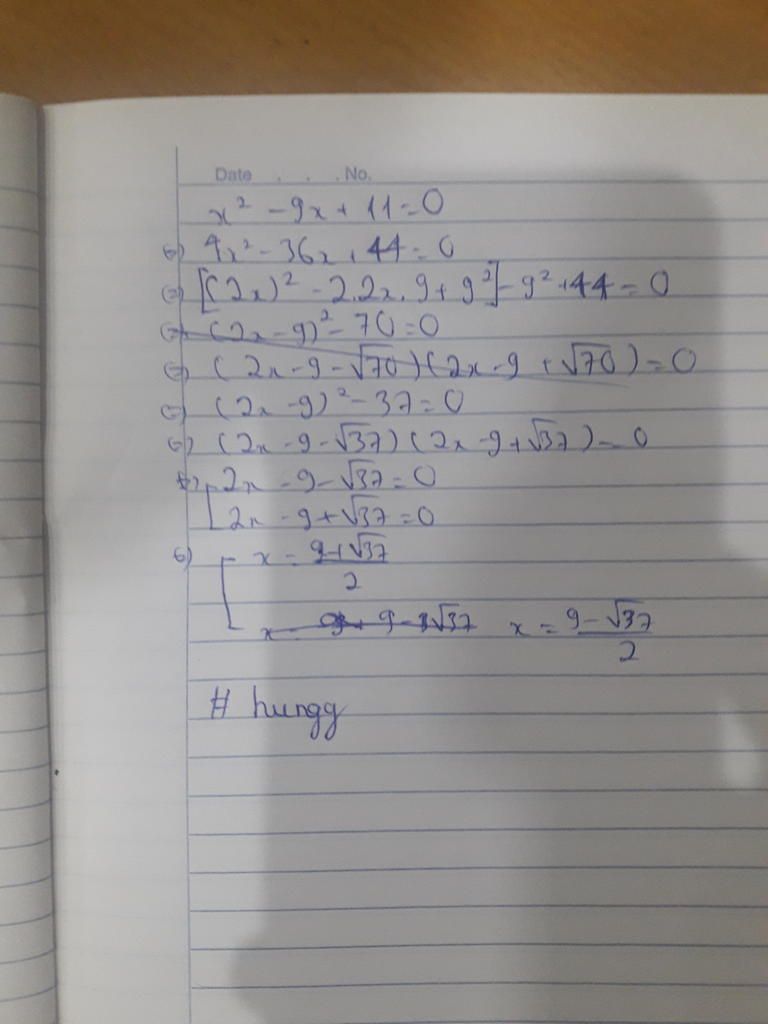 Date . . . No.
x² - 9x + 11 = 0
⇔) 4x² - 36x + 44 = 0
⇔) [(2x)² - 2.2x.9 + 9²] - 9² + 44 = 0
⇔) (2x - 9)² - 70 = 0
⇔) (2x - 9 - √70)(2x - 9 + √70) = 0
⇔) (2x - 9)² - 37 = 0
⇔) (2x - 9 - √37)(2x - 9 + √37) = 0
⇔) [2x - 9 - √37 = 0
2x - 9 + √37 = 0
⇔) [x = (9 + √37)/2
x = 9 - √37 x = (9 - √37)/2
# hungg